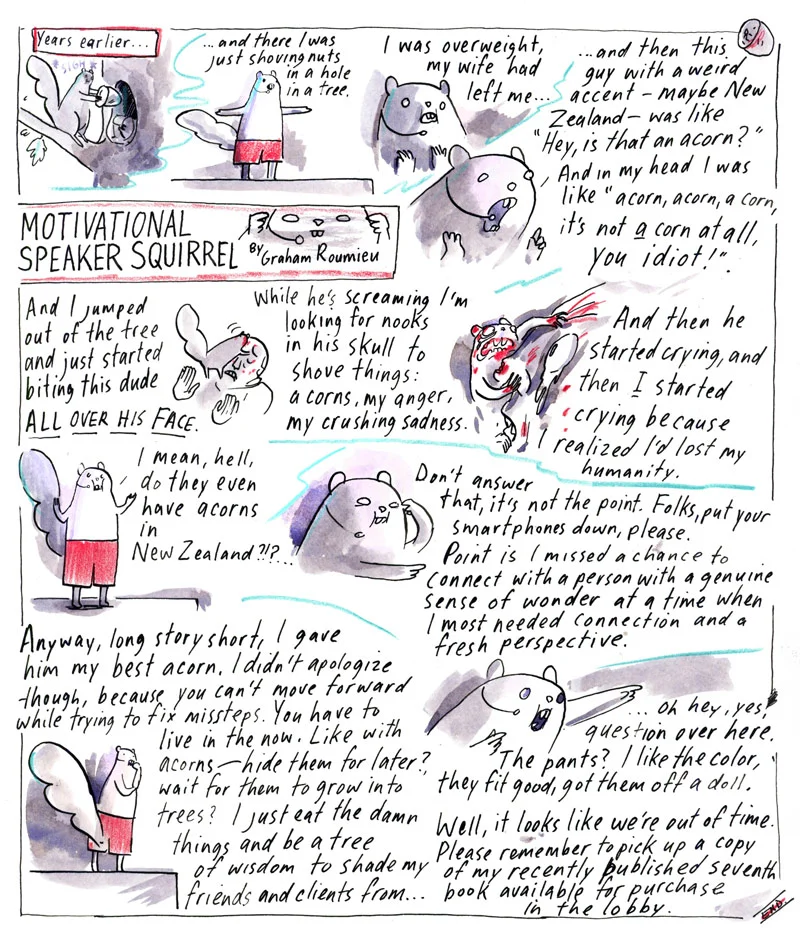 Years earlier...
*SIGH*
...and there I was
just shoving nuts
in a hole
in a tree.
I was overweight,
my wife had
left me...
...and then this
guy with a weird
accent - maybe New
Zealand - was like
"Hey, is that an acorn?"
And in my head I was
like "acorn, acorn, a corn,
it's not a corn at all,
you idiot!".
MOTIVATIONAL
SPEAKER SQUIRREL
By Graham Roumieu
And I jumped
out of the tree
and just started
biting this dude
ALL OVER HIS FACE.
While he's screaming I'm
looking for nooks
in his skull to
shove things:
acorns, my anger,
my crushing sadness.
And then he
started crying, and
then I started
crying because
I realized I'd lost my
humanity.
I mean, hell,
do they even
have acorns
in
New Zealand?!?...
Don't answer
that, it's not the point. Folks, put your
smartphones down, please.
Point is I missed a chance to
connect with a person with a genuine
sense of wonder at a time when
I most needed connection and a
fresh perspective.
Anyway, long story short, I gave
him my best acorn. I didn't apologize
though, because you can't move forward
while trying to fix missteps. You have to
live in the now. Like with
acorns - hide them for later?
wait for them to grow into
trees? I just eat the damn
things and be a tree
of wisdom to shade my
friends and clients from...
... oh hey, yes,
question over here.
The pants? I like the color,
they fit good, got them off a doll.
Well, it looks like we're out of time.
Please remember to pick up a copy
of my recently published seventh
book available for purchase
in the lobby.
END.